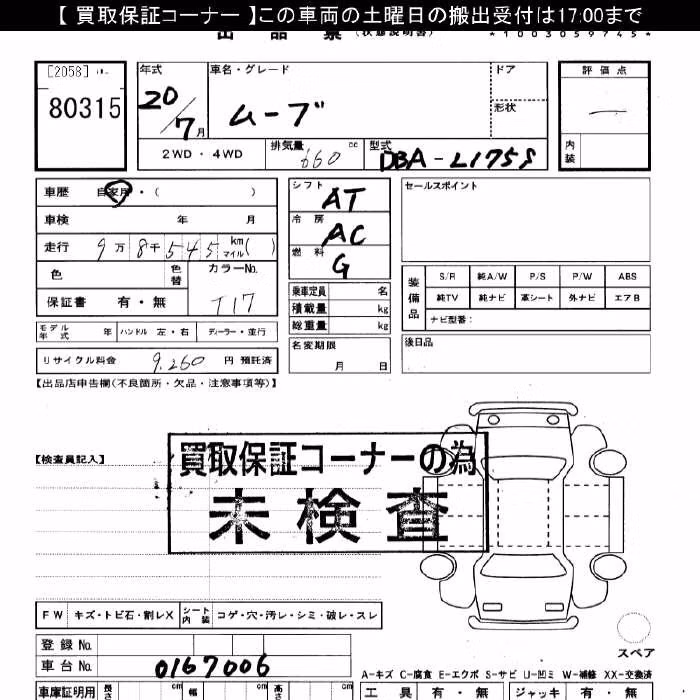 【 買取保証コーナー 】この車両の土曜日の搬出受付は17:00まで
出 品 票 (状態説明書) *1003059745*
[2058]
80315
年式 20/7月
車名・グレード ムーブ
ドア
形状
評価点 —
内装
2WD ・ 4WD
排気量 660 cc
型式 DBA-L175S
車歴 自家用 ・( )
車検 年 月
走行 9万8千545 km マイル( )
色 色替 カラーNo.
保証書 有・無 T17
モデル年式 年 ハンドル 左・右 ディーラー・並行
リサイクル料金 9,260 円 預託済
シフト AT
冷房 AC
燃料 G
乗車定員 名
積載量 kg
総重量 kg
名変期限
月 日
セールスポイント
装備品
S/R 純A/W P/S P/W ABS
純TV 純ナビ 革シート 外ナビ エアB
ナビ型番：
後日品
【出品店申告欄(不良箇所・欠品・注意事項等)】
【検査員記入】
買取保証コーナーの為
未検査
FW キズ・トビ石・割レX シート内装 コゲ・穴・汚レ・シミ・破レ・スレ
登録No.
車台No. 0167006
スペア
A−キズ C−腐食 E−エクボ S−サビ U−凹ミ W−補修 XX−交換済
車庫証明用 長さ cm 幅 cm 高さ cm
工具 有・無 ジャッキ 有・無